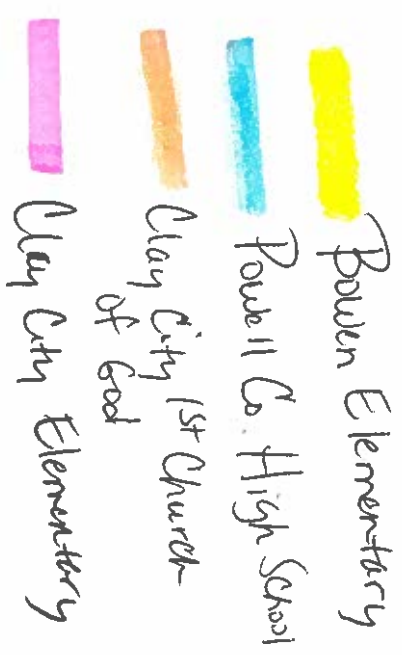 Bowen Elementary
Powell Co High School
Clay City 1st Church
of God
Clay City Elementary